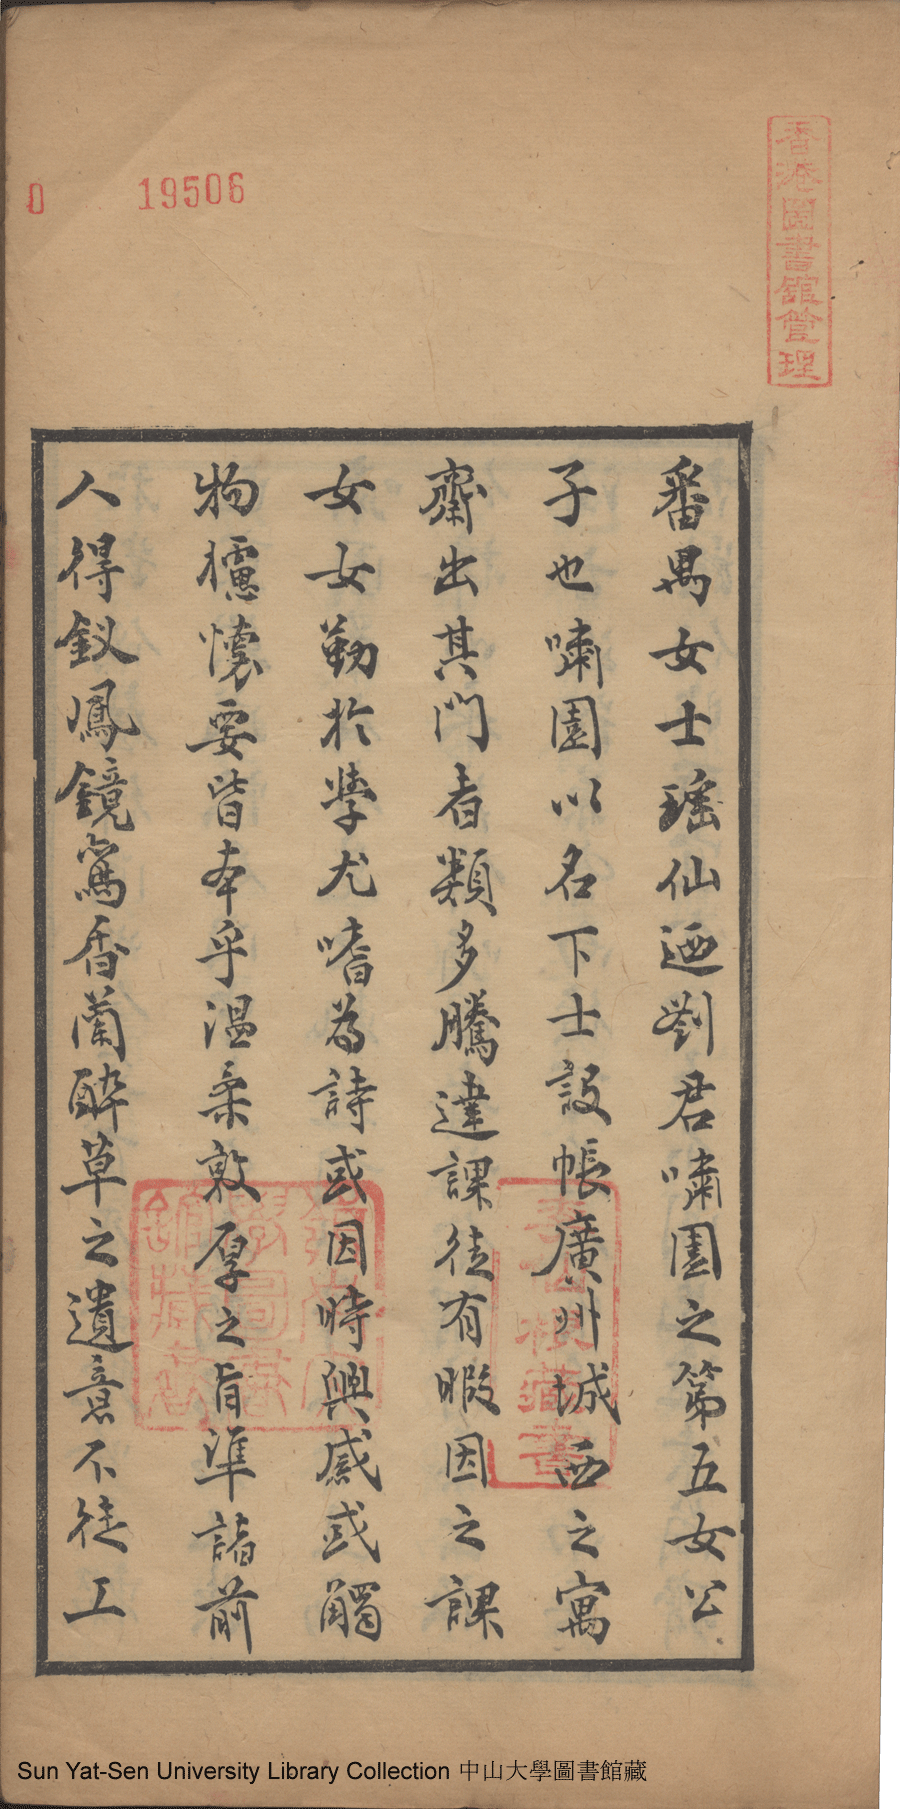 香港圖書館管理
19506
0
番禺女士瑤仙迺劉君嘯園之第五女公
子也嘯園以名下士設帳廣州城西之寓
齋出其門者類多騰達課徒有暇因之課
女女勤於學尤嗜為詩或因時興感或觸
物攄懷要皆本乎溫柔敦厚之旨準諸前
人得釵鳳鏡鸞香蘭醉草之遺意不徒工
Sun Yat-Sen University Library Collection 中山大學圖書館藏